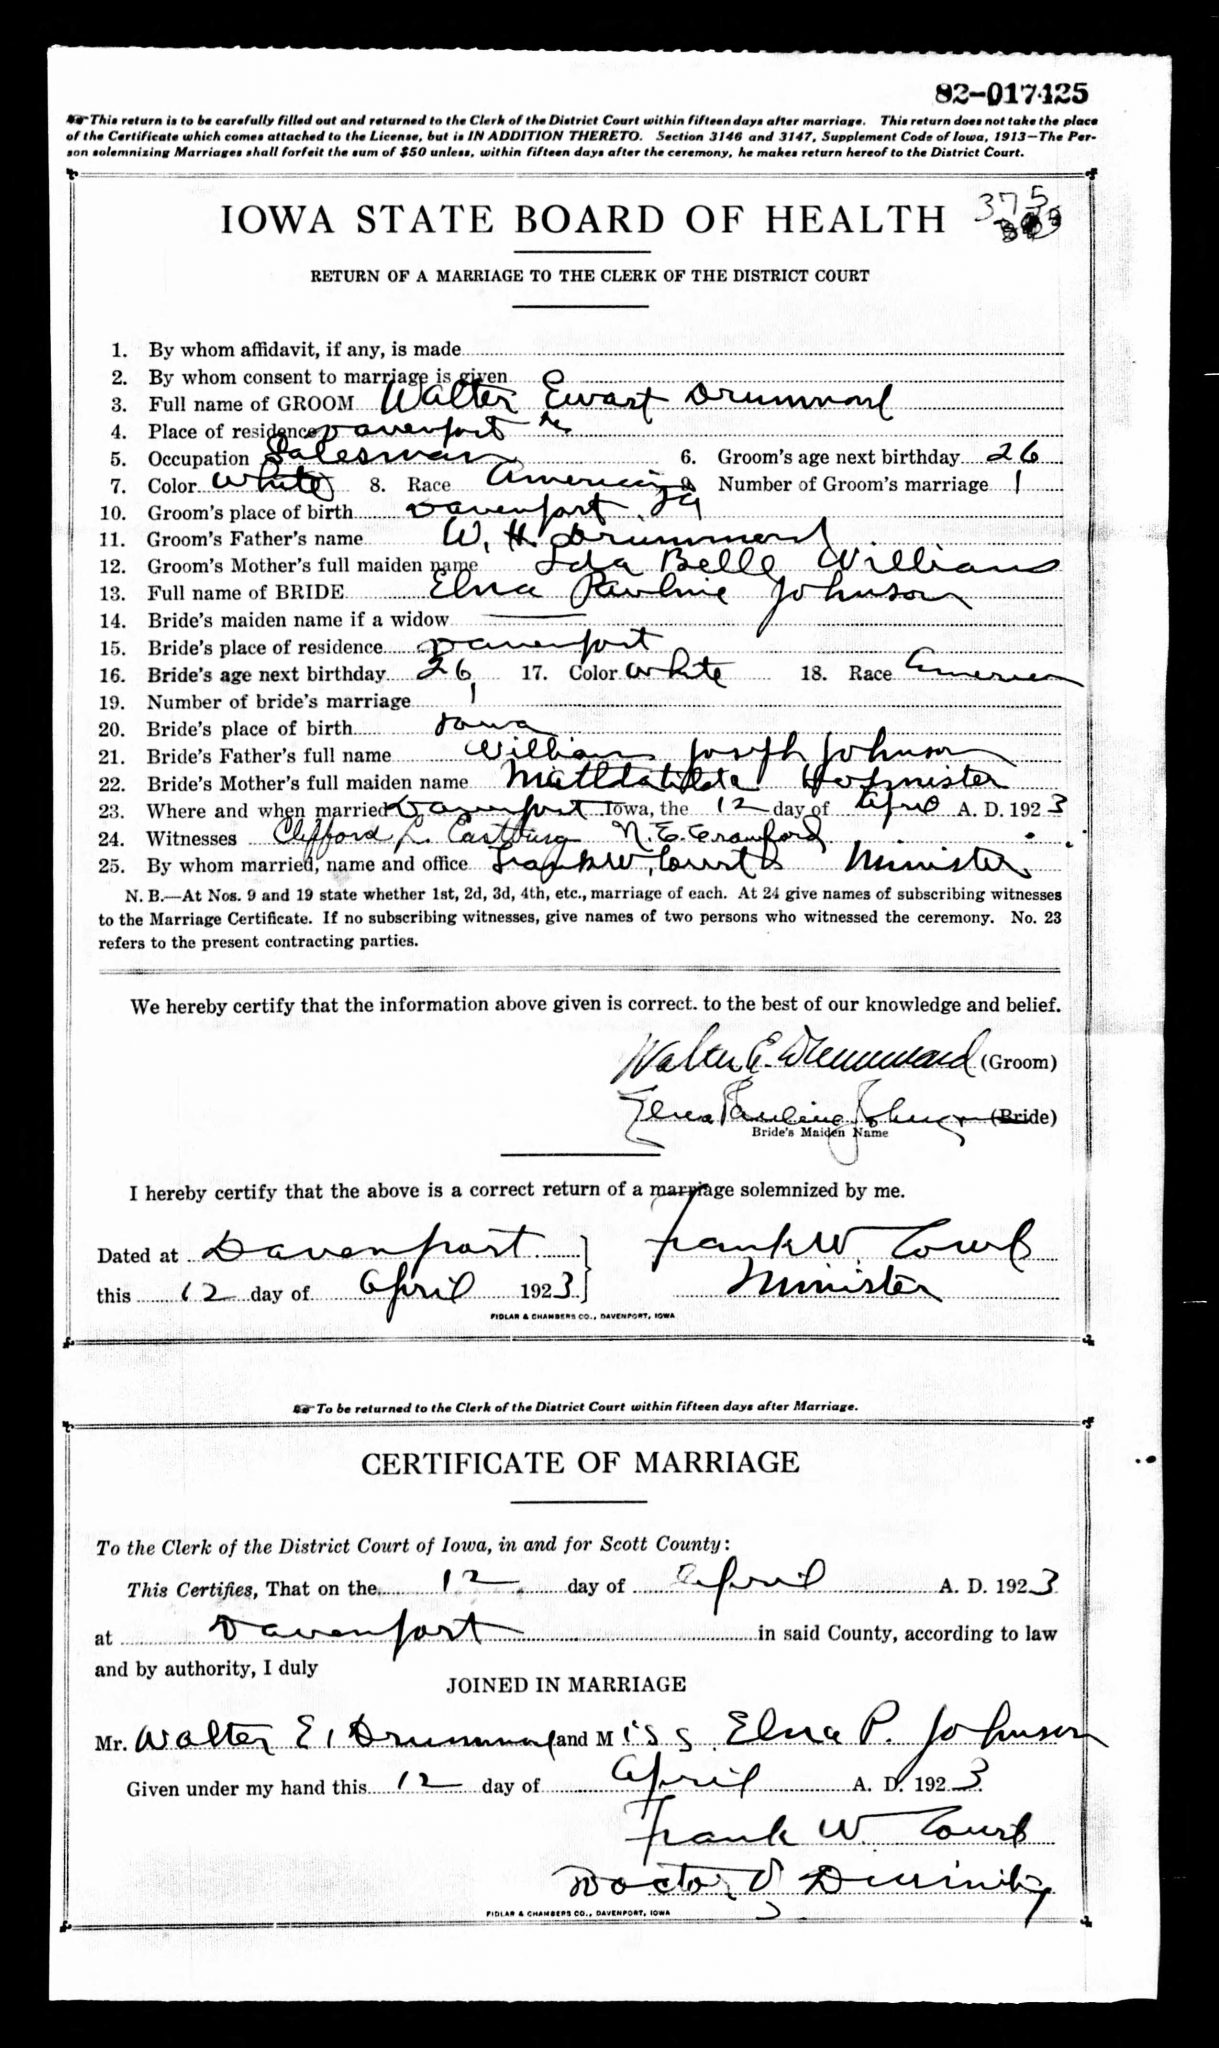 82-017425
☞ This return is to be carefully filled out and returned to the Clerk of the District Court within fifteen days after marriage. This return does not take the place
of the Certificate which comes attached to the License, but is IN ADDITION THERETO. Section 3146 and 3147, Supplement Code of Iowa, 1913—The Per-
son solemnizing Marriages shall forfeit the sum of $50 unless, within fifteen days after the ceremony, he makes return hereof to the District Court.
IOWA STATE BOARD OF HEALTH 375
RETURN OF A MARRIAGE TO THE CLERK OF THE DISTRICT COURT
1. By whom affidavit, if any, is made
2. By whom consent to marriage is given
3. Full name of GROOM Walter Ewart Drummond
4. Place of residence Davenport Ia
5. Occupation Salesman 6. Groom's age next birthday 26
7. Color White 8. Race American 9. Number of Groom's marriage 1
10. Groom's place of birth Davenport, Ia
11. Groom's Father's name W. H. Drummond
12. Groom's Mother's full maiden name Ida Belle Williams
13. Full name of BRIDE Elna Pauline Johnson
14. Bride's maiden name if a widow
15. Bride's place of residence Davenport
16. Bride's age next birthday 26 17. Color White 18. Race American
19. Number of bride's marriage 1
20. Bride's place of birth Iowa
21. Bride's Father's full name William Joseph Johnson
22. Bride's Mother's full maiden name Hofmister
23. Where and when married Davenport Iowa, the 12 day of April A. D. 1923
24. Witnesses Clifford L. Eastburg N. E. Cranford
25. By whom married, name and office Frank W. Court Minister
N. B.—At Nos. 9 and 19 state whether 1st, 2d, 3d, 4th, etc., marriage of each. At 24 give names of subscribing witnesses
to the Marriage Certificate. If no subscribing witnesses, give names of two persons who witnessed the ceremony. No. 23
refers to the present contracting parties.
We hereby certify that the information above given is correct. to the best of our knowledge and belief.
Walter E. Drummond (Groom)
Elna Pauline Johnson (Bride)
Bride's Maiden Name
I hereby certify that the above is a correct return of a marriage solemnized by me.
Dated at Davenport Frank W. Court
this 12 day of April 1923 Minister
FIDLAR & CHAMBERS CO., DAVENPORT, IOWA
☞ To be returned to the Clerk of the District Court within fifteen days after Marriage.
CERTIFICATE OF MARRIAGE
To the Clerk of the District Court of Iowa, in and for Scott County:
This Certifies, That on the 12 day of April A. D. 1923
at Davenport in said County, according to law
and by authority, I duly
JOINED IN MARRIAGE
Mr. Walter E. Drummond and Miss Elna P. Johnson
Given under my hand this 12 day of April A. D. 1923
Frank W. Court
Doctor of Divinity
FIDLAR & CHAMBERS CO., DAVENPORT, IOWA